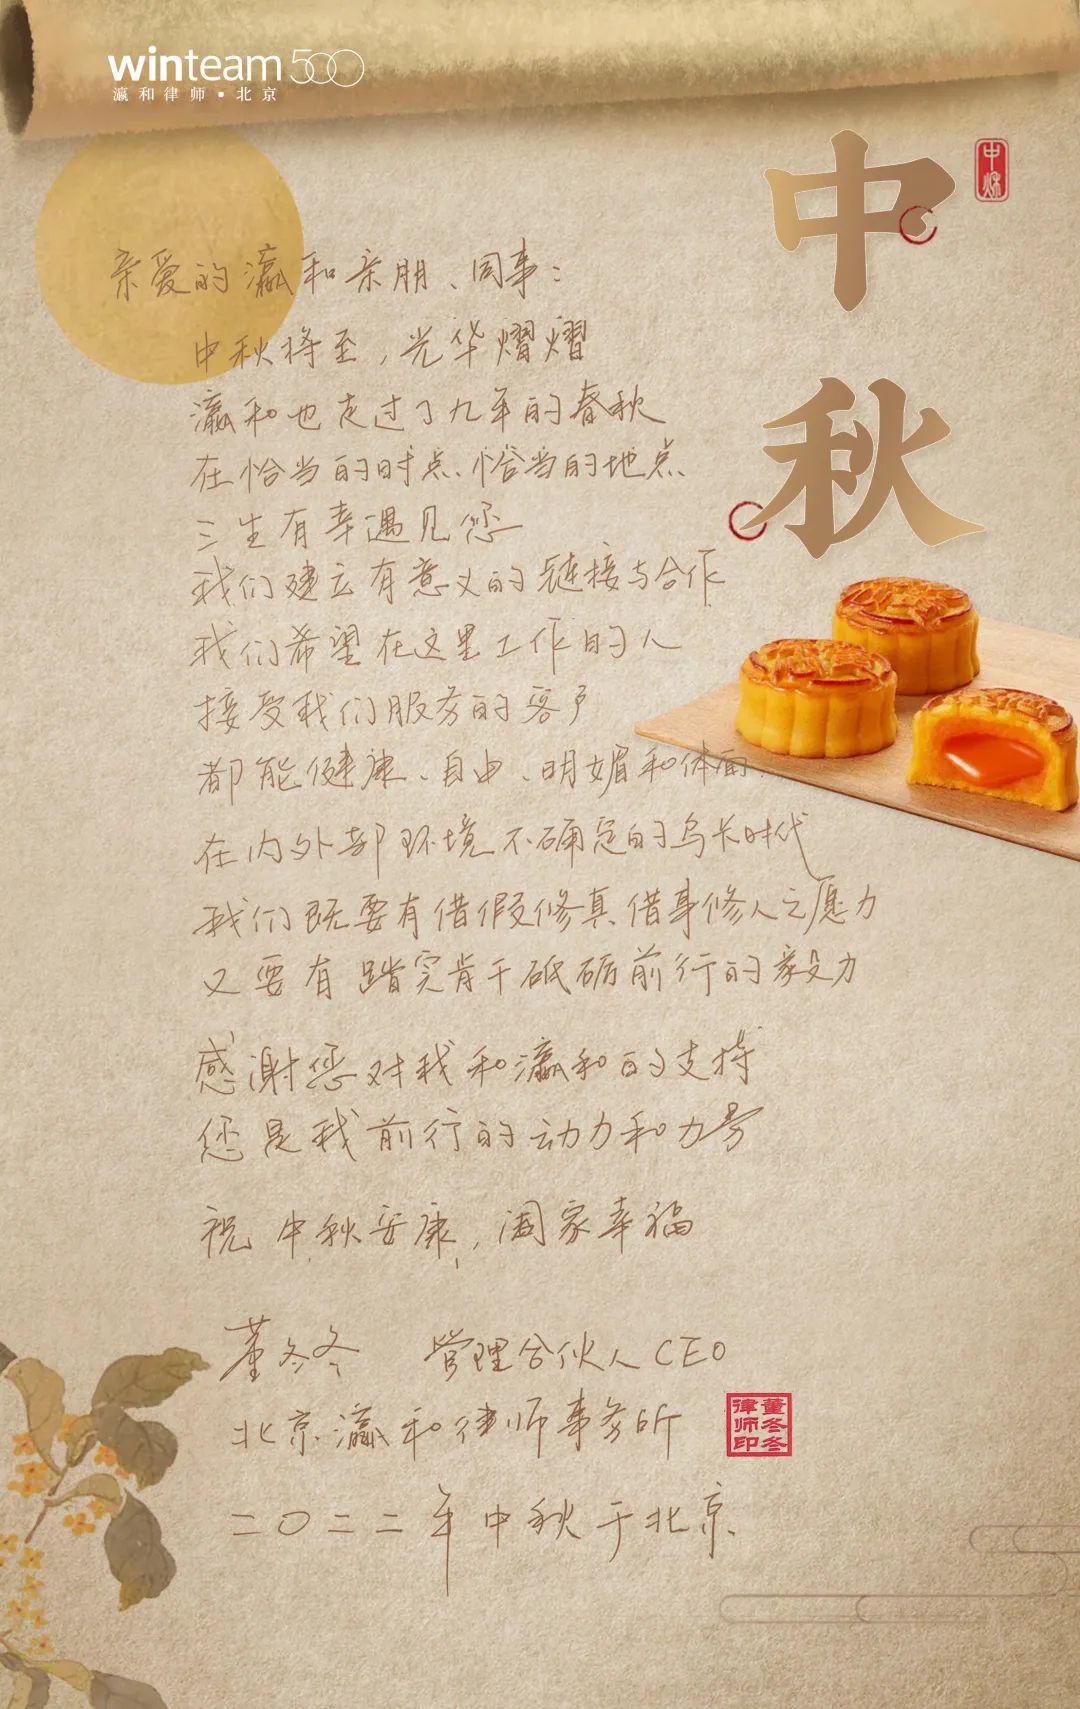 winteam500
瀛和律师·北京
中秋
中秋
亲爱的瀛和亲朋、同事：
中秋将至，光华熠熠
瀛和也走过了九年的春秋
在恰当的时点、恰当的地点
三生有幸遇见您
我们建立有意义的链接与合作
我们希望在这里工作的人
接受我们服务的客户
都能健康、自由、明媚和体面
在内外部环境不确定的乌卡时代
我们既要有借假修真、借事修人之愿力
又要有踏实肯干砥砺前行的毅力
感谢您对我和瀛和的支持
您是我前行的动力和力量
祝 中秋安康，阖家幸福
董冬冬 管理合伙人CEO
北京瀛和律师事务所
董冬冬
律师印
二〇二二年中秋于北京